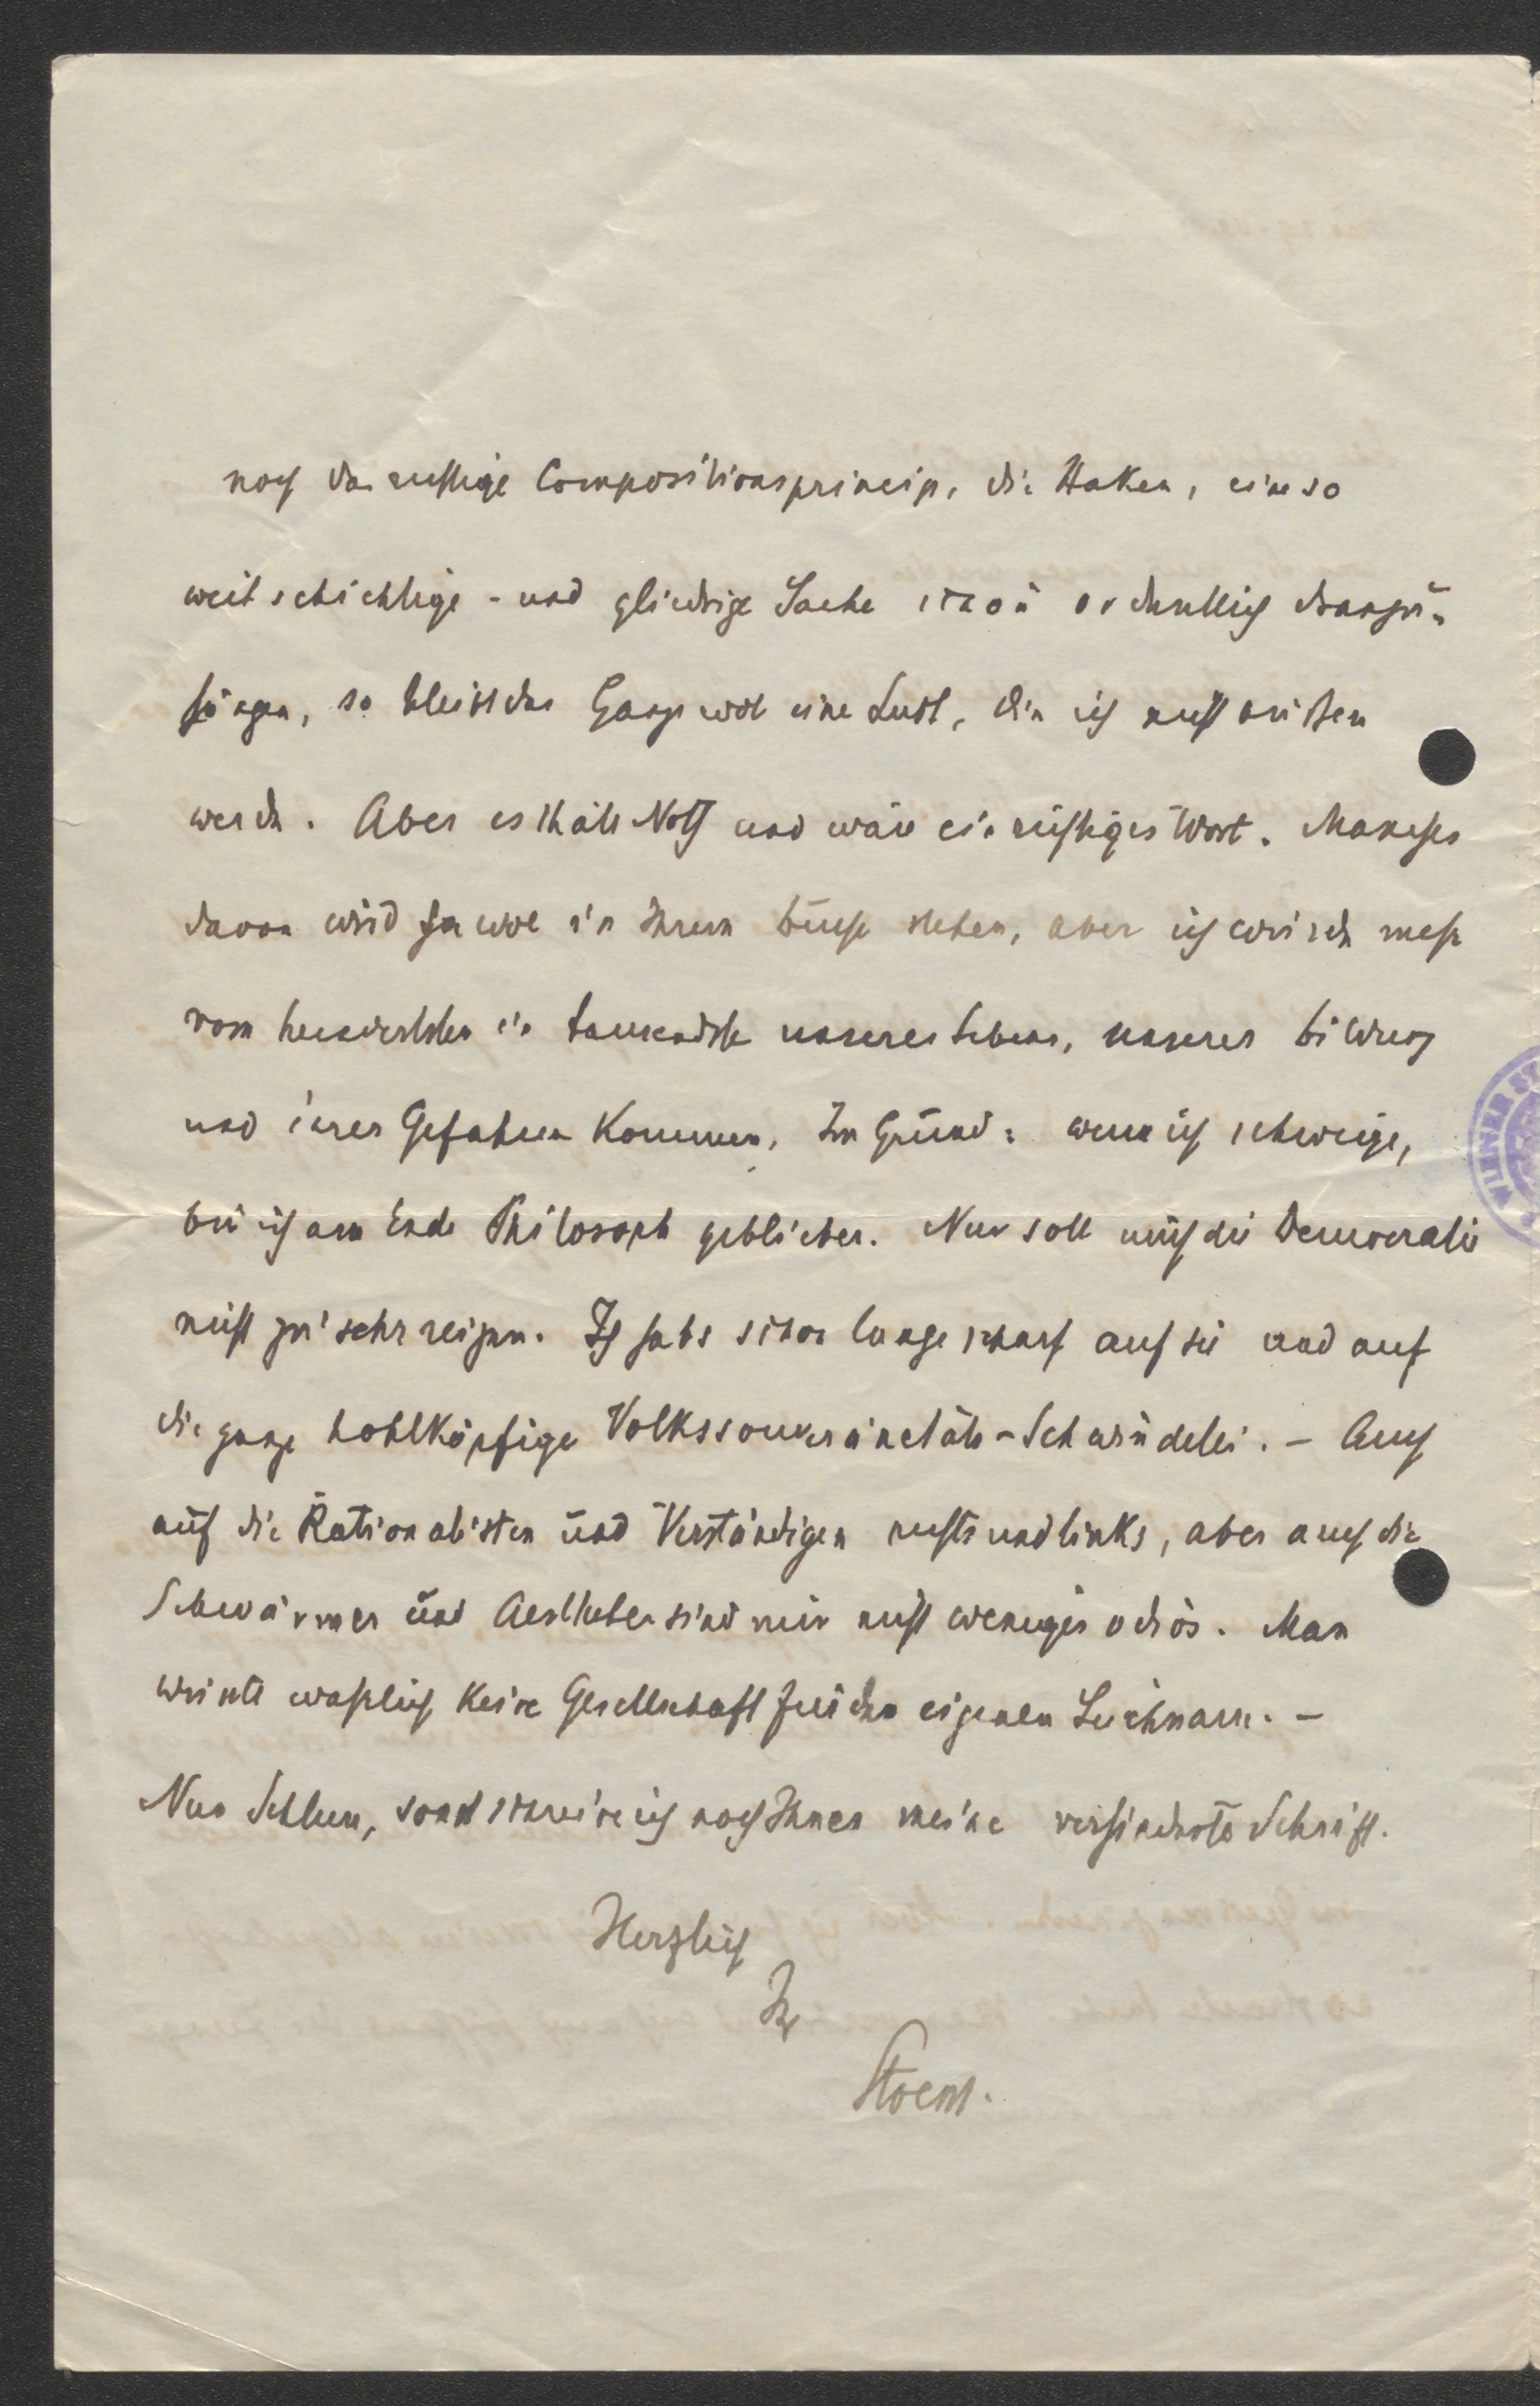 noch das richtige Compositionsprincip, die Haken, eine so
weitschichtige - und gliedrige Sache schön ordentlich dranzu-
hängen, so bleibt das Ganze wol eine Lust, die ich nicht büßen
werde. Aber es thäte Noth und wäre ein richtiges Wort. Manches
davon wird ja wol in Ihrem Buche stehen, aber ich würde mehr
vom hundertsten in tausendste unseres Lebens, unserer Bildung
und ihrer Gefahren kommen. Im Grund: wenn ich schweige,
bin ich am Ende Philosoph geblieben. Nur soll mich die Democratie
nicht zu sehr reizen. Ich habs schon lange scharf auf sie und auf
die ganze hohlköpfige Volkssouveränetäts-Schwindelei. - Auch
auf die Rationalisten und Verständigen rechts und links, aber auch die
Schwärmer und Aestheten sind mir nicht weniger odiös. Man
wüßte wahrlich keine Gesellschaft für den eigenen Leichnam. -
Nun Schluss, sonst schreibe ich noch Ihnen meine verhinderte Schrift.
Herzlich
Ihr
Stoessl.
WIENER ST